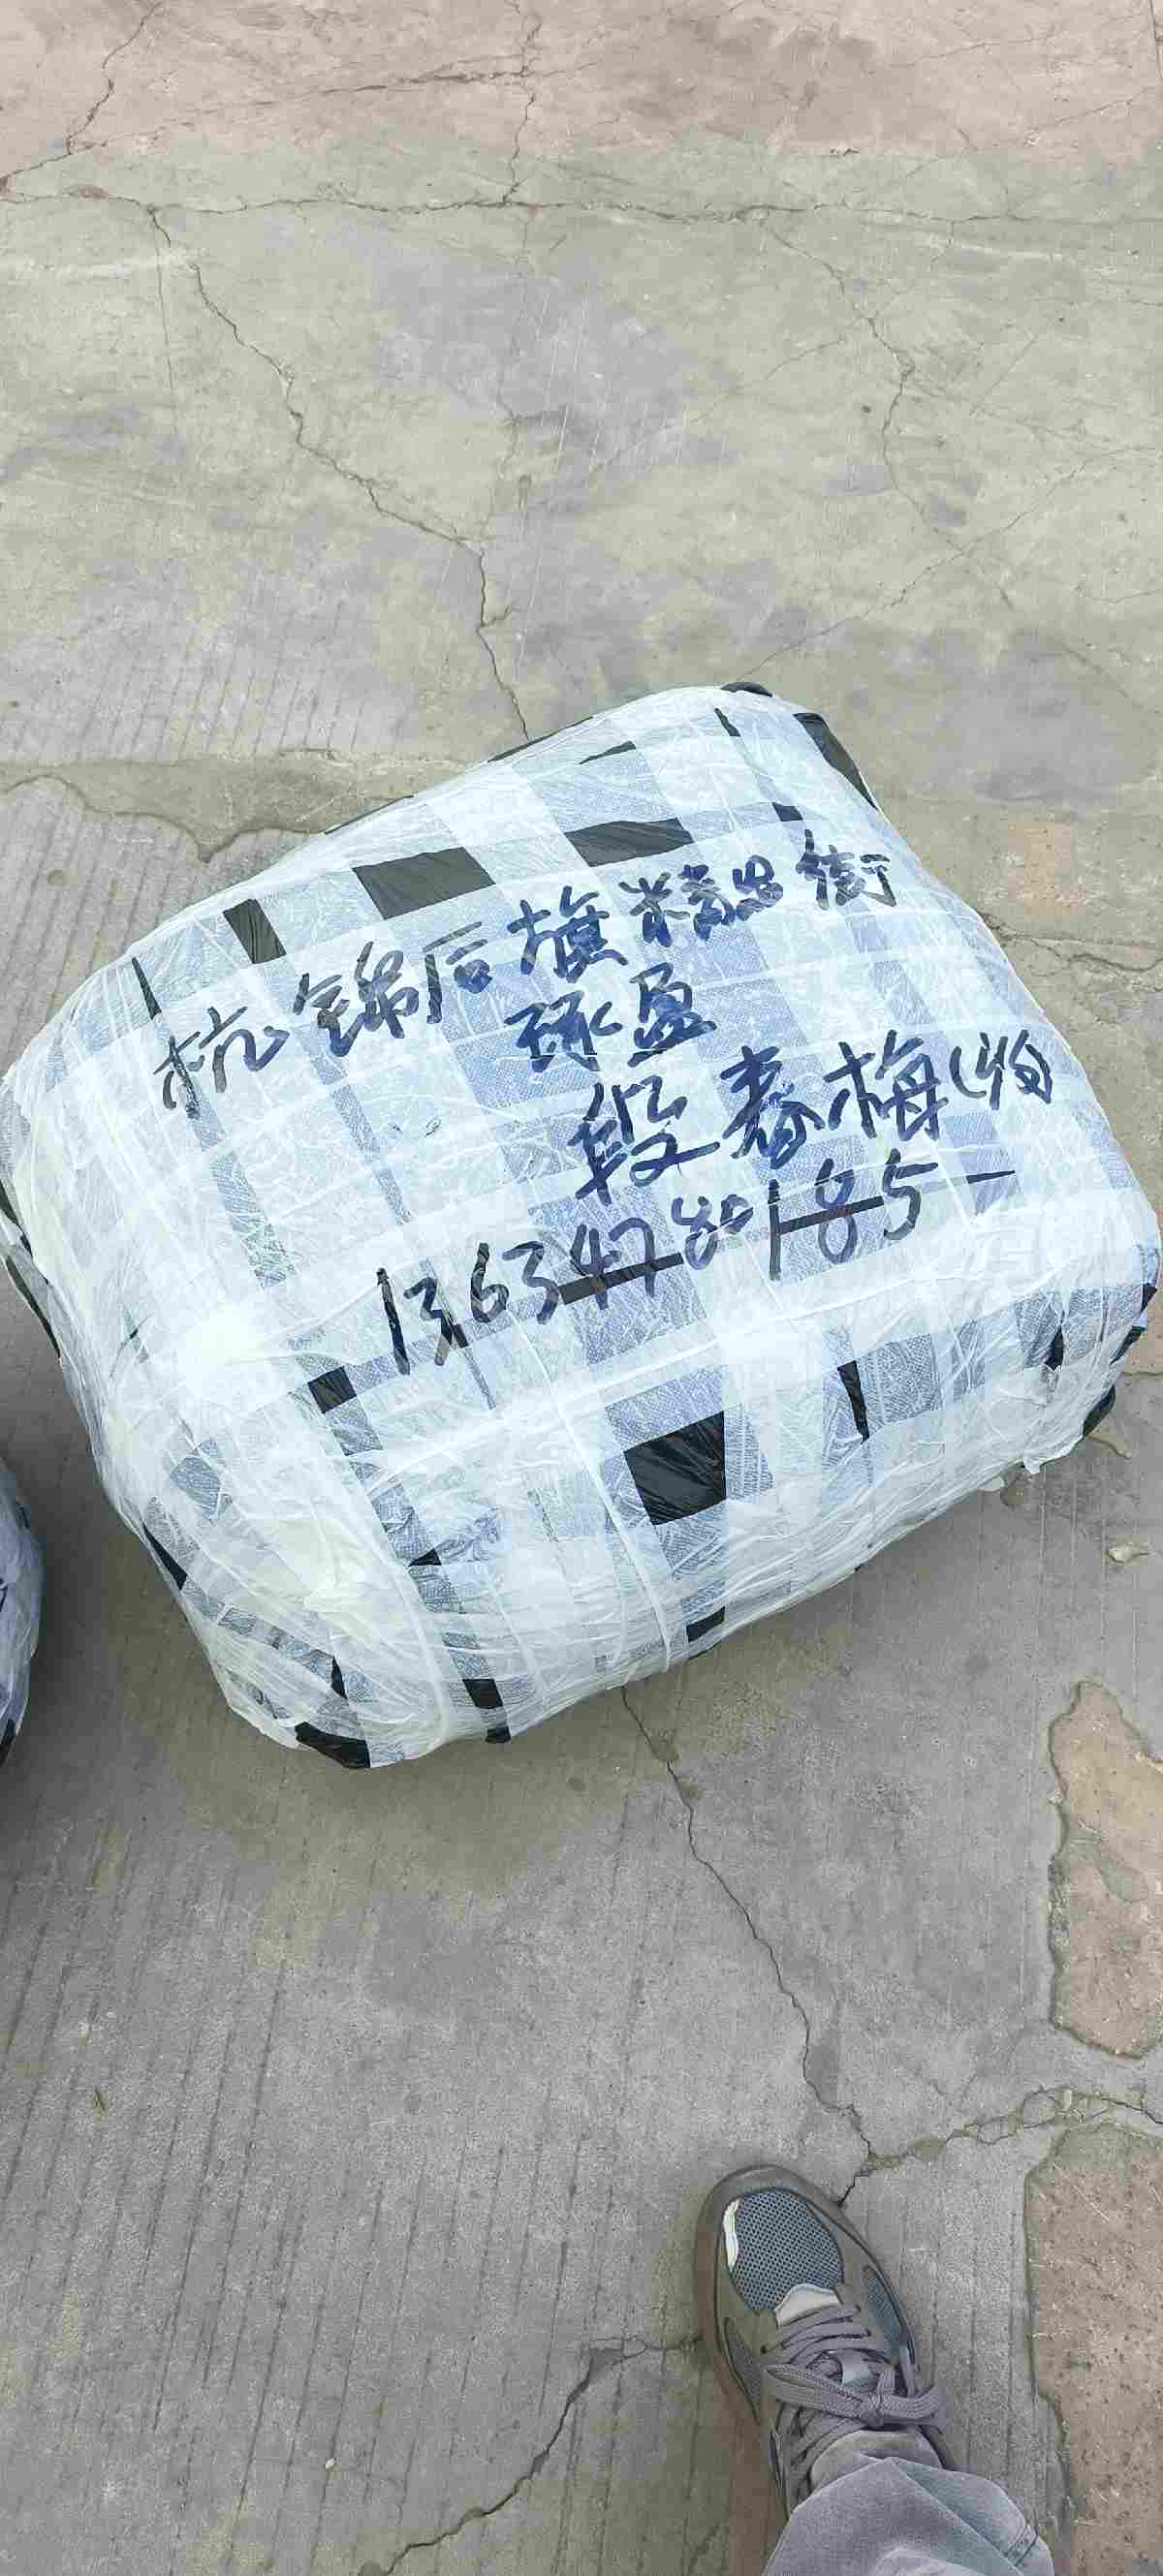 杭锦后旗精品街
琢盈
段春梅(收)
13634780185